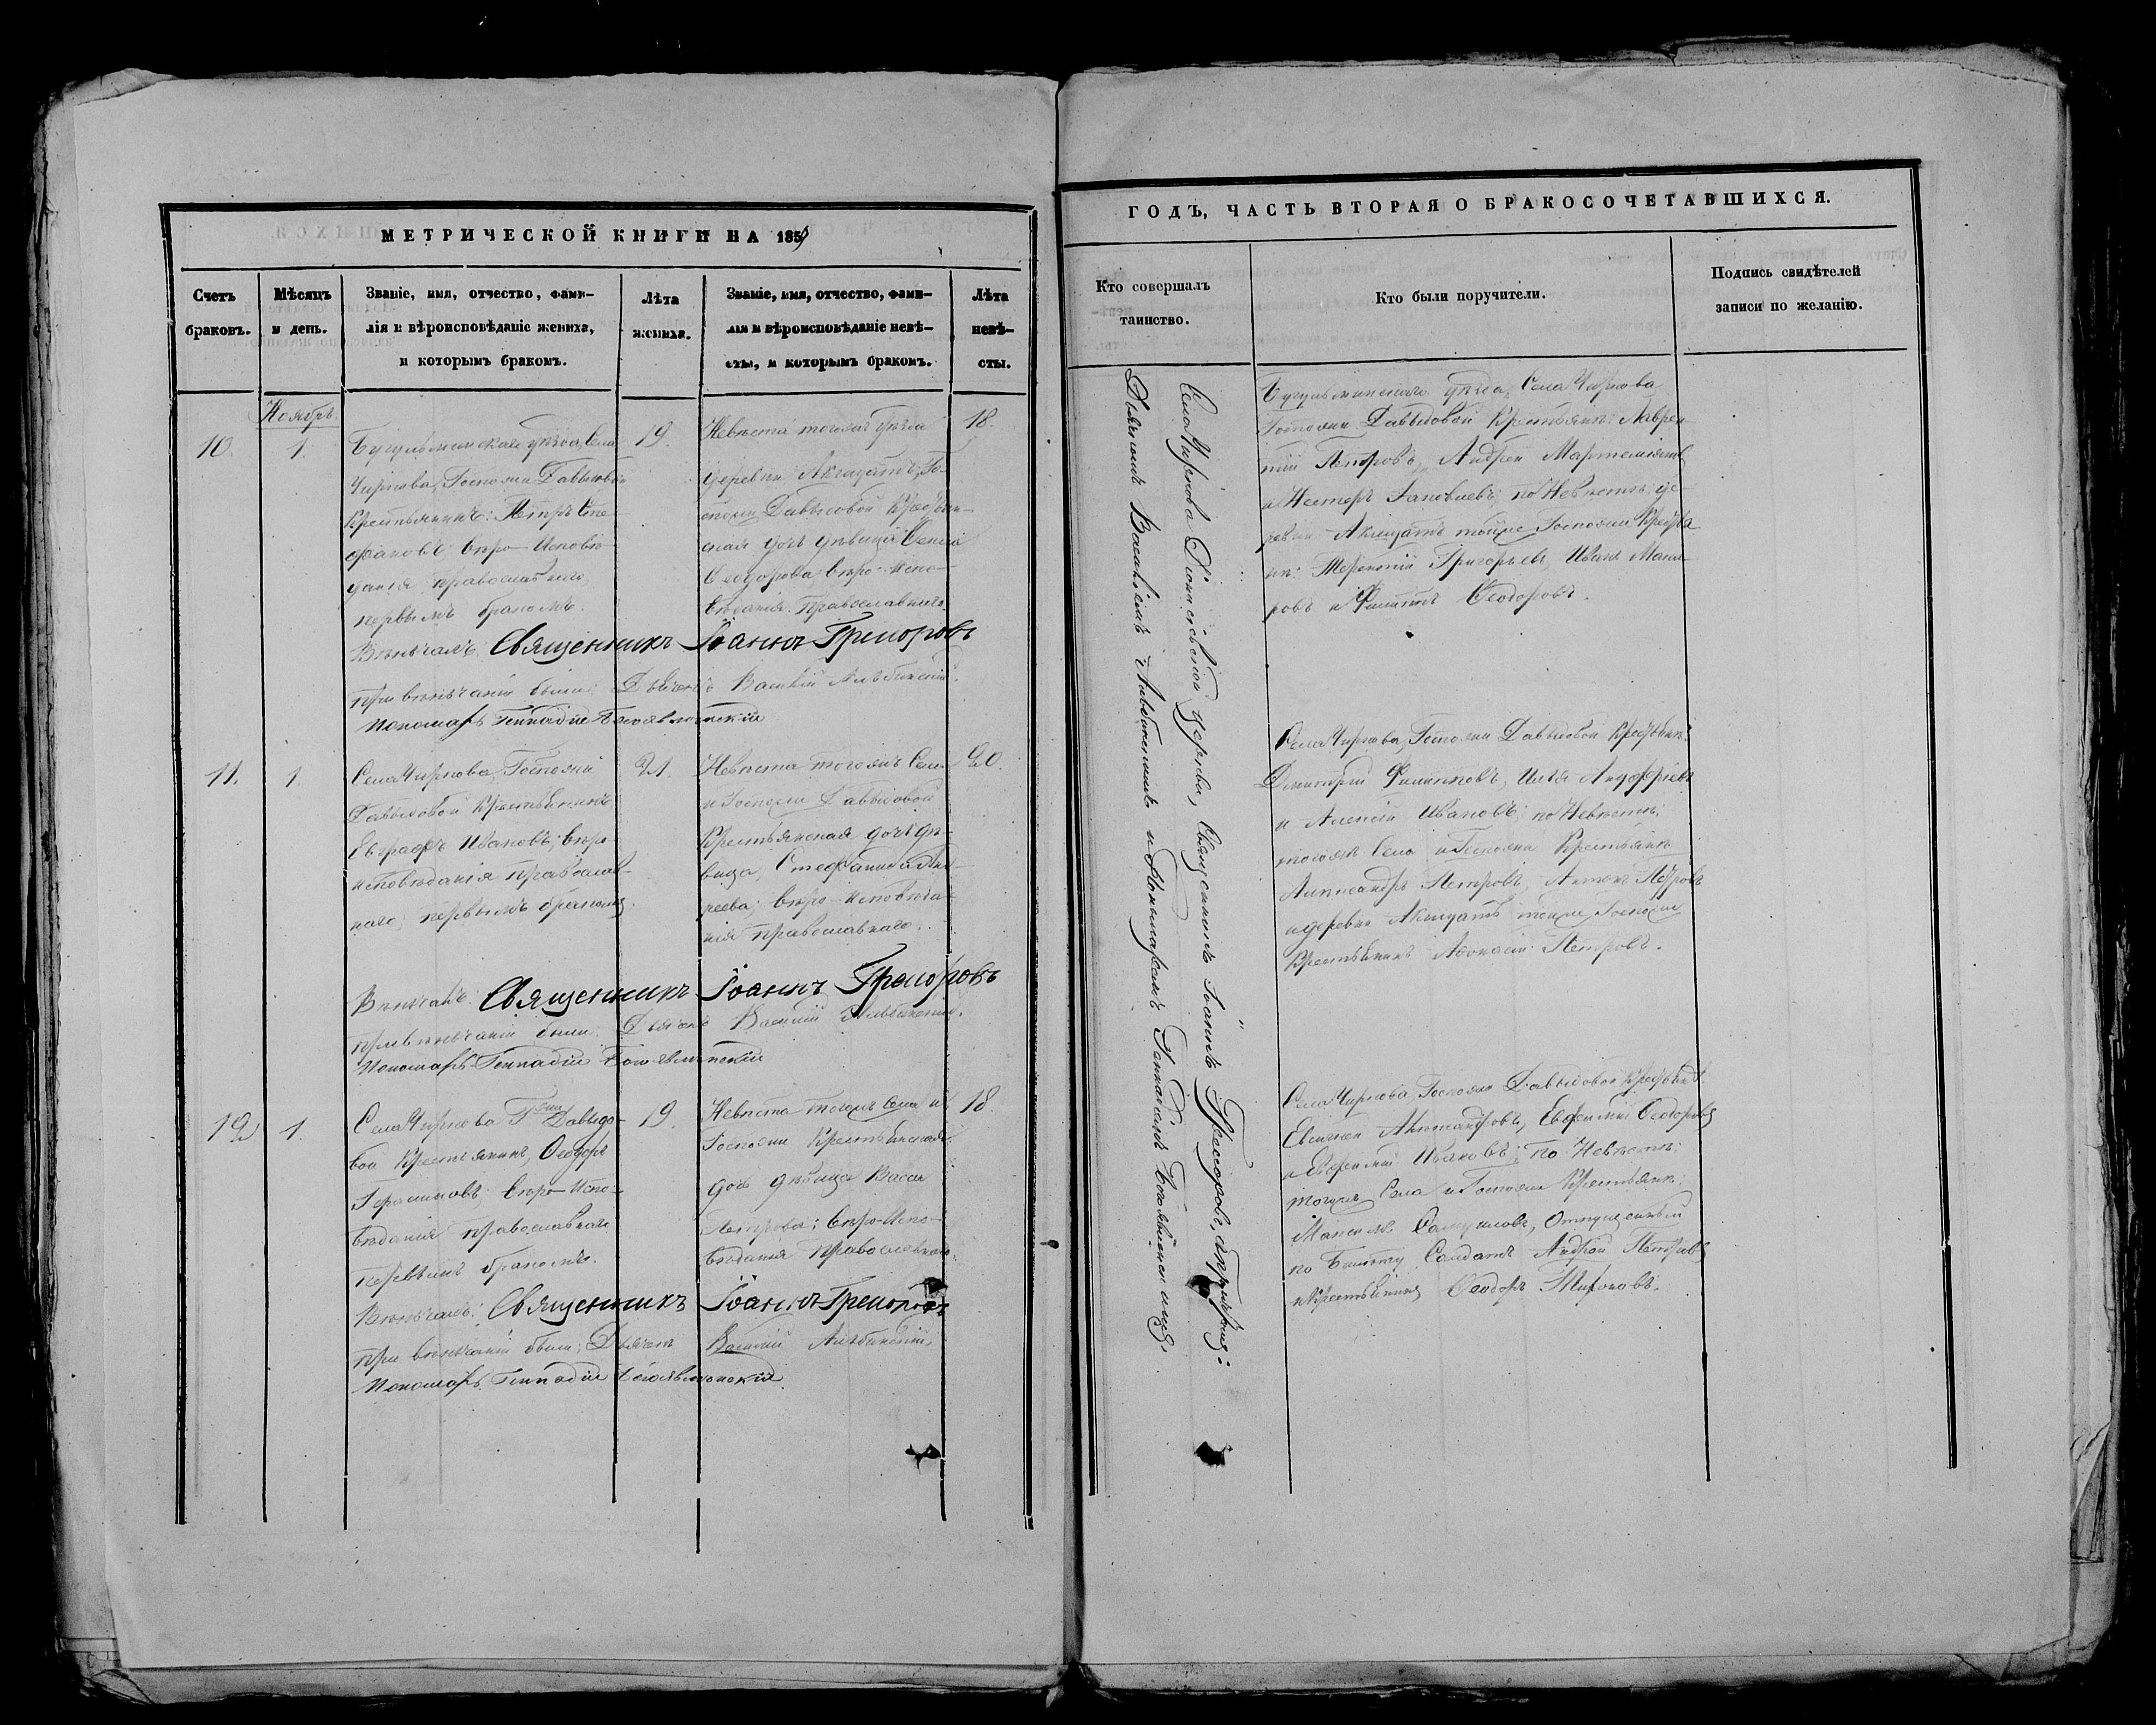 МЕТРИЧЕСКОЙ КНИГИ НА 1859
Счетъ браковъ.
Мѣсяцъ и день.
Званіе, имя, отчество, фами-
лія и вѣроисповѣданіе жениха,
и которымъ бракомъ.
Лѣта жениха.
Званіе, имя, отчество, фами-
лія и вѣроисповѣданіе невѣ-
сты, и которымъ бракомъ.
Лѣта невѣ-
сты.
Ноябрь
10.
1.
Бугульминскаго уѣзда, Села
Чиркова, Госпожи Давыдовой
Крестьянинъ: Петръ Сте-
фановъ; вѣро-исповѣ-
данія православнаго
первымъ бракомъ.
19.
Невѣста тогожъ уѣзда
деревни Го-
спожи Давыдовой Крестьян-
ская дочь дѣвица
Ѳеодорова; вѣро-испо-
вѣданія православнаго.
18.
Вѣнчалъ: Священникъ Іоаннъ Григоровъ
при вѣнчаніи были: Дьячекъ Василій
Пономарь Геннадій Богоявленскій
11.
1.
Села Чиркова, Госпожи
Давыдовой Крестьянинъ
Евграфъ Ивановъ; вѣро-
исповѣданія православ-
наго; первымъ бракомъ.
21.
Невѣста тогожъ Села
и Госпожи Давыдовой
Крестьянская дочь дѣ-
вица, Стефанида Анд-
реева; вѣро-исповѣда-
нія православнаго.
20.
Вѣнчалъ: Священникъ Іоаннъ Григоровъ
при вѣнчаніи были: Дьячекъ Василій
Пономарь Геннадій Богоявленскій
12.
1.
Села Чиркова Г-жи Давыдо-
вой Крестьянинъ, Ѳеодоръ
Герасимовъ; вѣро-испо-
вѣданія православнаго
первымъ бракомъ.
19.
Невѣста тогожъ Села и
Госпожи Крестьянская
дочь дѣвица
Петрова; вѣро-испо-
вѣданія православнаго.
18.
Вѣнчалъ: Священникъ Іоаннъ Григоровъ
при вѣнчаніи были: Дьячекъ Василій
Пономарь Геннадій Богоявленскій
ГОДЪ, ЧАСТЬ ВТОРАЯ О БРАКОСОЧЕТАВШИХСЯ.
Кто совершалъ
таинство.
Кто были поручители.
Подпись свидѣтелей
записи по желанію.
Села Чиркова церкви, Священникъ Іоаннъ Григоровъ, съ причтомъ:
Дьячкомъ Василіемъ и Пономаремъ Геннадіемъ Богоявленскимъ.
Бугульминскаго уѣзда, Села Чиркова
Госпожи Давыдовой Крестьяне: Лаврен-
тій Петровъ, Андрей
и Несторъ по Невѣстѣ: де-
ревни тойже Госпожи Крестья-
не: Терентій Григорьевъ, Иванъ
и Филиппъ Ѳеодоровъ.
Села Чиркова, Госпожи Давыдовой Крестьяне:
Дмитрій Филипповъ, Илья
и Алексѣй Ивановъ; по Невѣстѣ:
тогожъ Села и Госпожи Крестьяне
Александръ Петровъ, Антонъ Петровъ
и деревни тойже Госпожи
Крестьянинъ Аѳонасій Петровъ.
Села Чиркова, Госпожи Давыдовой Крестьяне:
Александровъ, Евфимій Ѳеодоровъ
и Ивановъ; по Невѣстѣ:
тогожъ Села и Госпожи Крестьяне:
Максимъ Отпущенный
по билету Солдатъ Андрей Петровъ
и Крестьянинъ Ѳеодоръ Мироновъ.